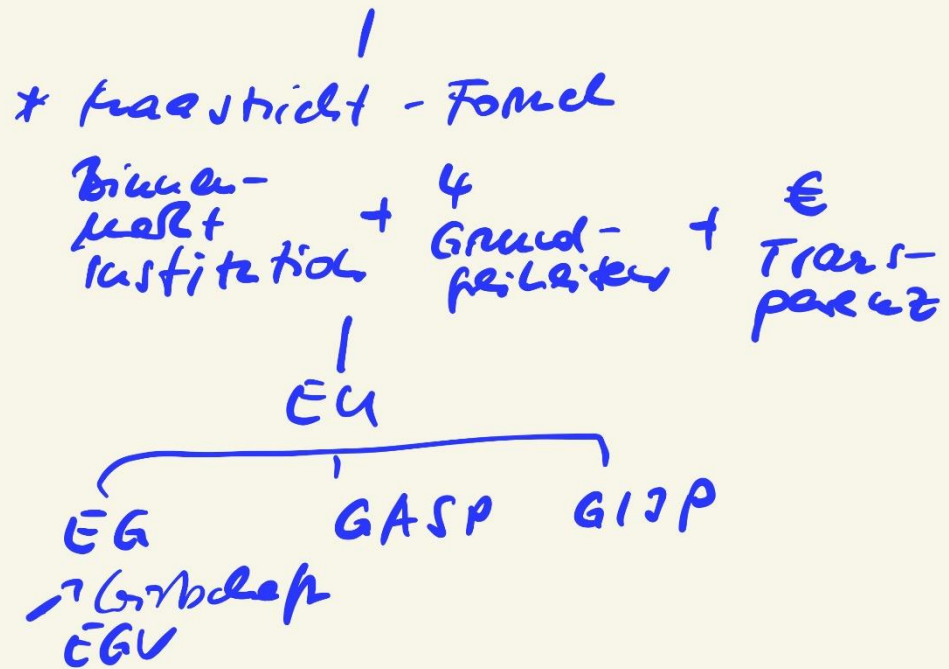 * Maastricht - Formel
Binnen-
markt
Institution + 4
Grund-
freiheiten + €
Trans-
parenz
EU
EG GASP GIJP
Wirtschaft
EGV